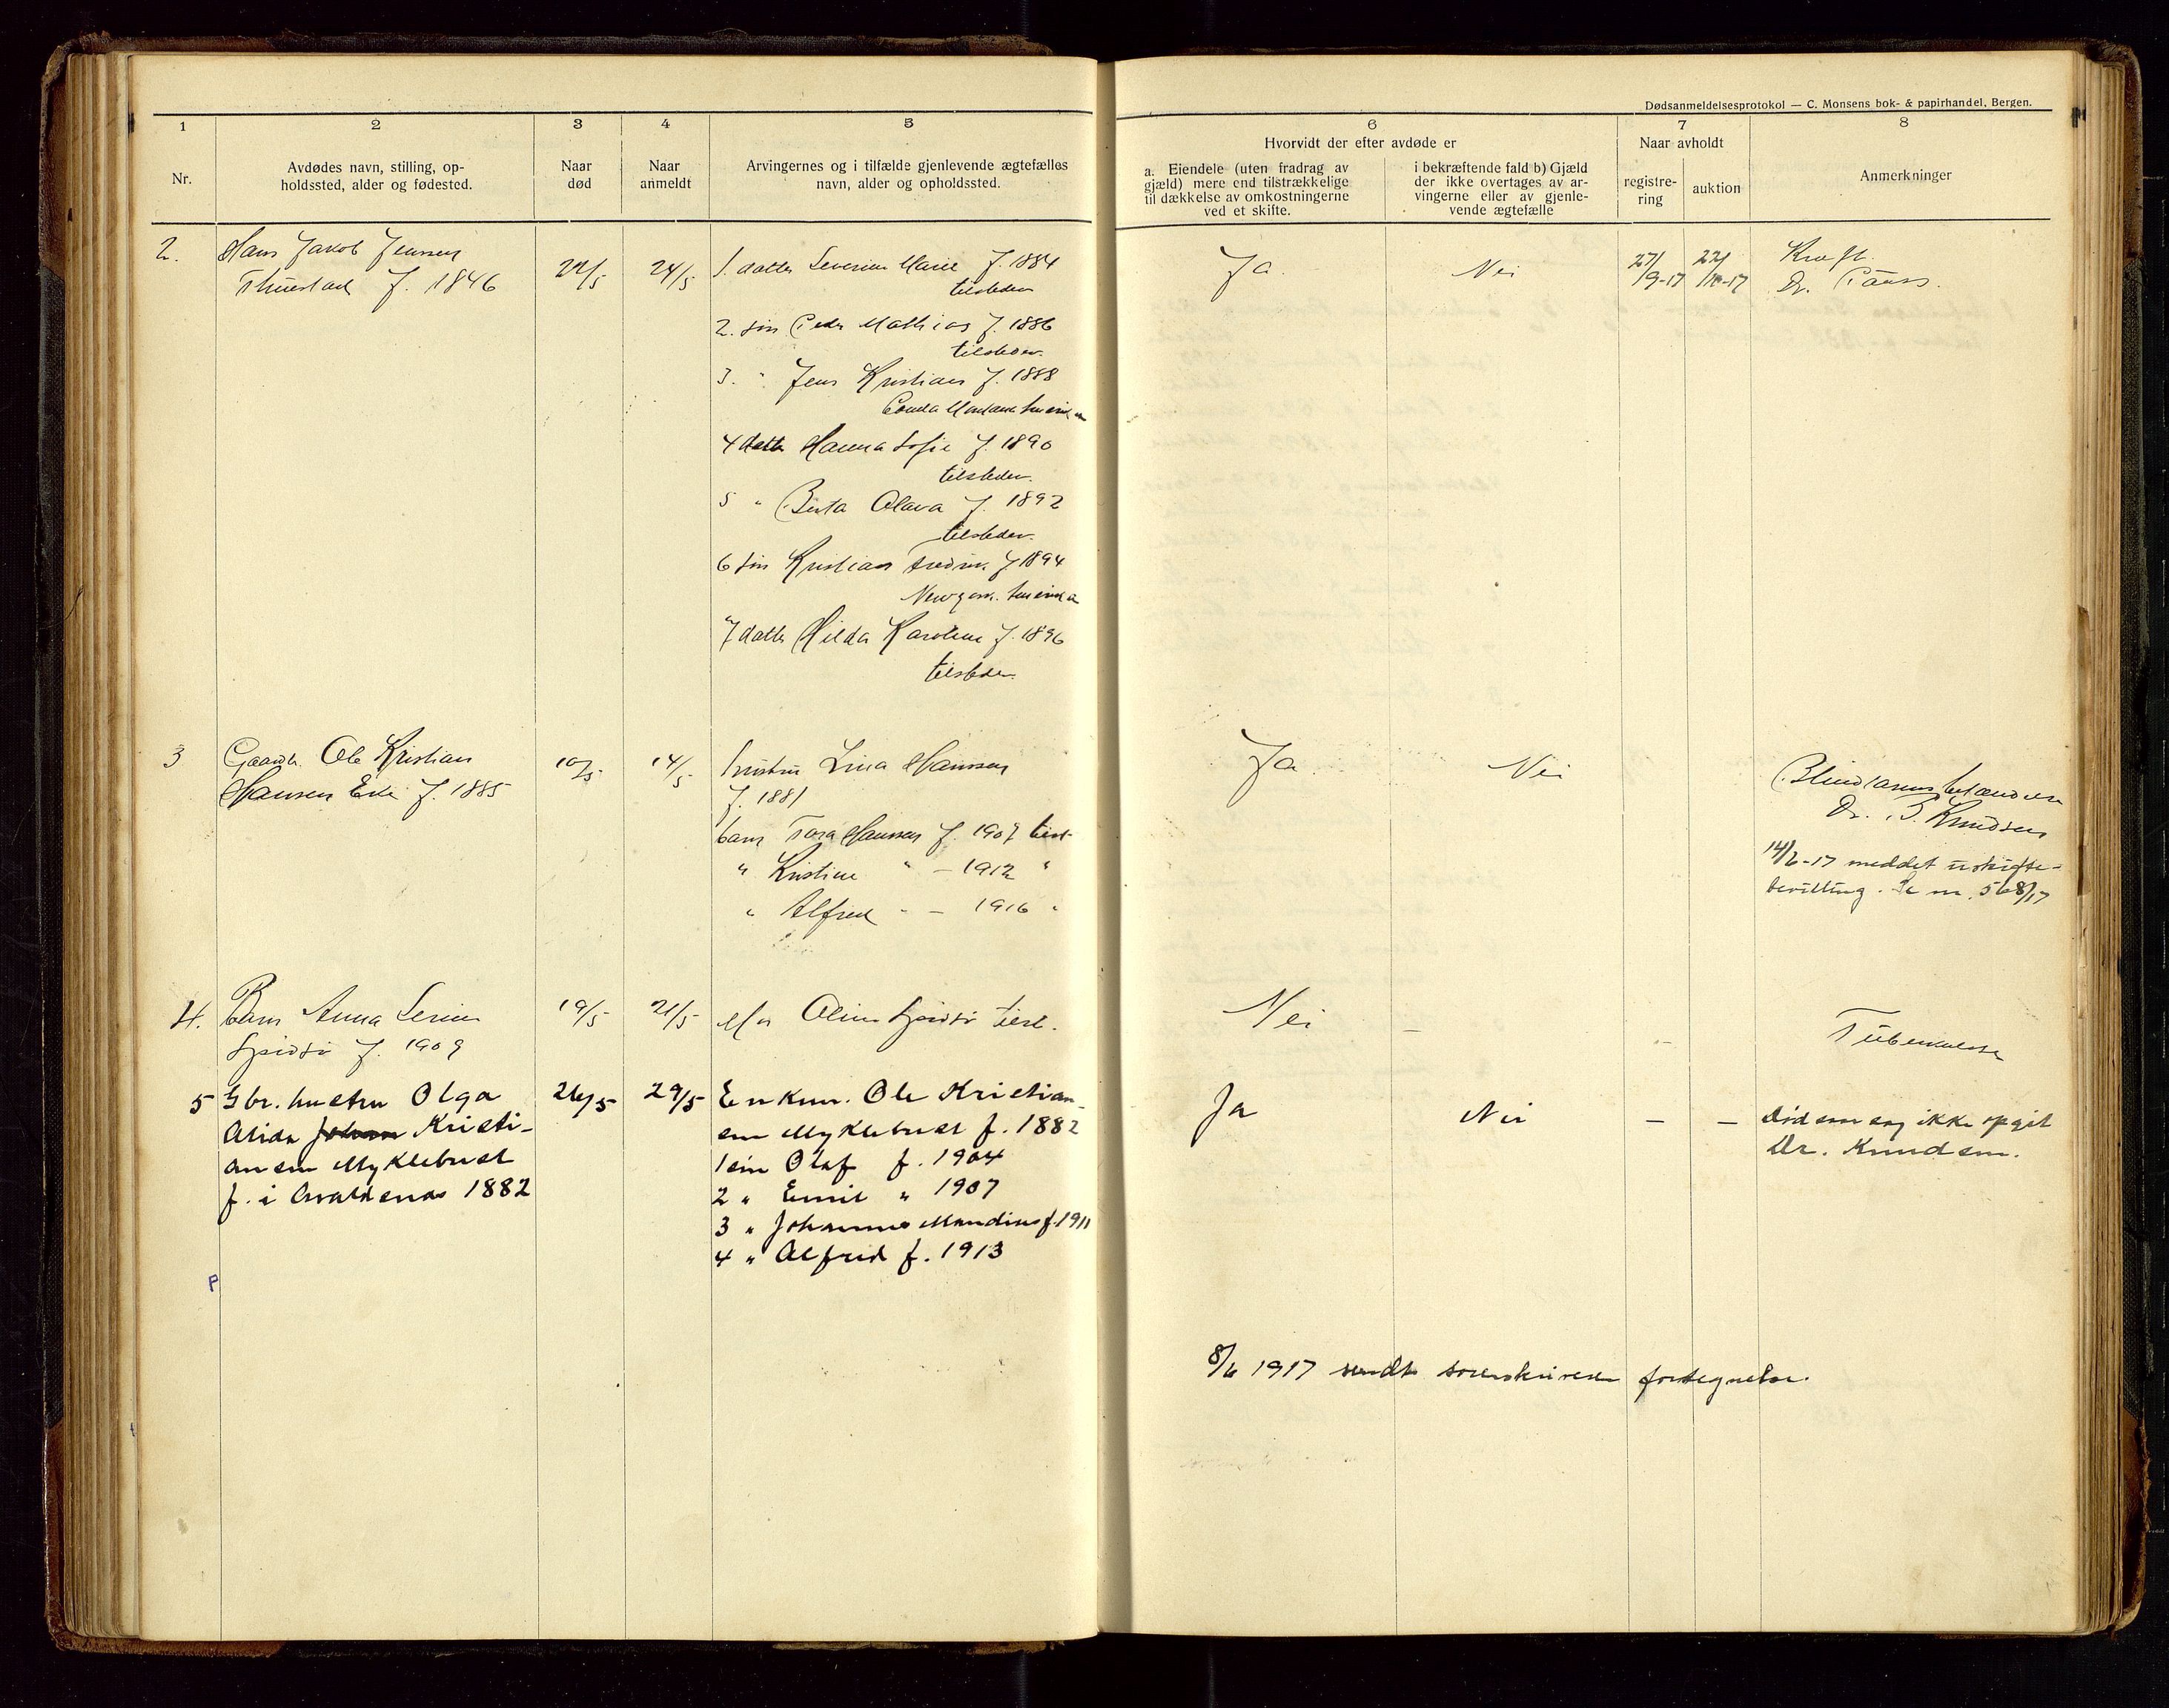 Dødsanmeldelsesprotokol — C. Monsens bok- & papirhandel, Bergen.
1
2
3
4
5
6
7
8
Nr.
Avdødes navn, stilling, op-
holdssted, alder og fødested.
Naar
død
Naar
anmeldt
Arvingernes og i tilfælde gjenlevende ægtefælles
navn, alder og opholdssted.
Hvorvidt der efter avdøde er
a. Eiendele (uten fradrag av
gjæld) mere end tilstrækkelige
til dækkelse av omkostningerne
ved et skifte.
i bekræftende fald b) Gjæld
der ikke overtages av ar-
vingerne eller av gjenle-
vende ægtefælle
Naar avholdt
registre-
ring
auktion
Anmerkninger
2.
Hans Jakob Jensen
f. 1846
22/5
24/5
1. datter Severine Marie f. 1884
tilsteder
2. søn Peder Mathias f. 1886
tilsteder.
3. " Jens Kristian f. 1888
4 datter Hanna Sofie f. 1890
tilsteder.
5 " Berta Olava f. 1892
tilsteder.
6 søn Kristian Fredrik f 1894
Newyork. Amerika
7 datter Hilda Karoline f. 1896
tilsteder.
Ja.
Nei
27/9-17
22/10-17
Kræft.
Dr.
3
Gaardb. Ole Kristian
Hansen Eike f. 1885
10/5
14/5
hustru Lina Hansen
f. 1881
barn Tora Hansen f. 1907 tilst-
" Kristine " - 1912 "
" Alfred " - 1916 "
Ja.
Nei
Blindtarmsbetændelse
Dr. B. Knudsen
14/6-17 meddelt uskifte-
bevilling. Se nr. 568/17
4.
Barn Anna Serine
f. 1909
19/5
21/5
Mor Oline tilst.
Nei
—
—
Tuberkulose
5
Gbr. hustru Olga
Alida Johan Kristi-
ansen Myklebust
f. i Avaldsnes 1882
26/5
29/5
Enkem. Ole Kristian-
sen Myklebust f. 1882
1 søn Olaf f. 1904
2 " Emil " 1907
3 " Johannes Mandius f. 1911
4 " Alfred f. 1913
Ja
Nei
—
—
Dødsaarsag ikke opgit
Dr. Knudsen.
P
8/6 1917 sendt sorenskriveren fortegnelse.